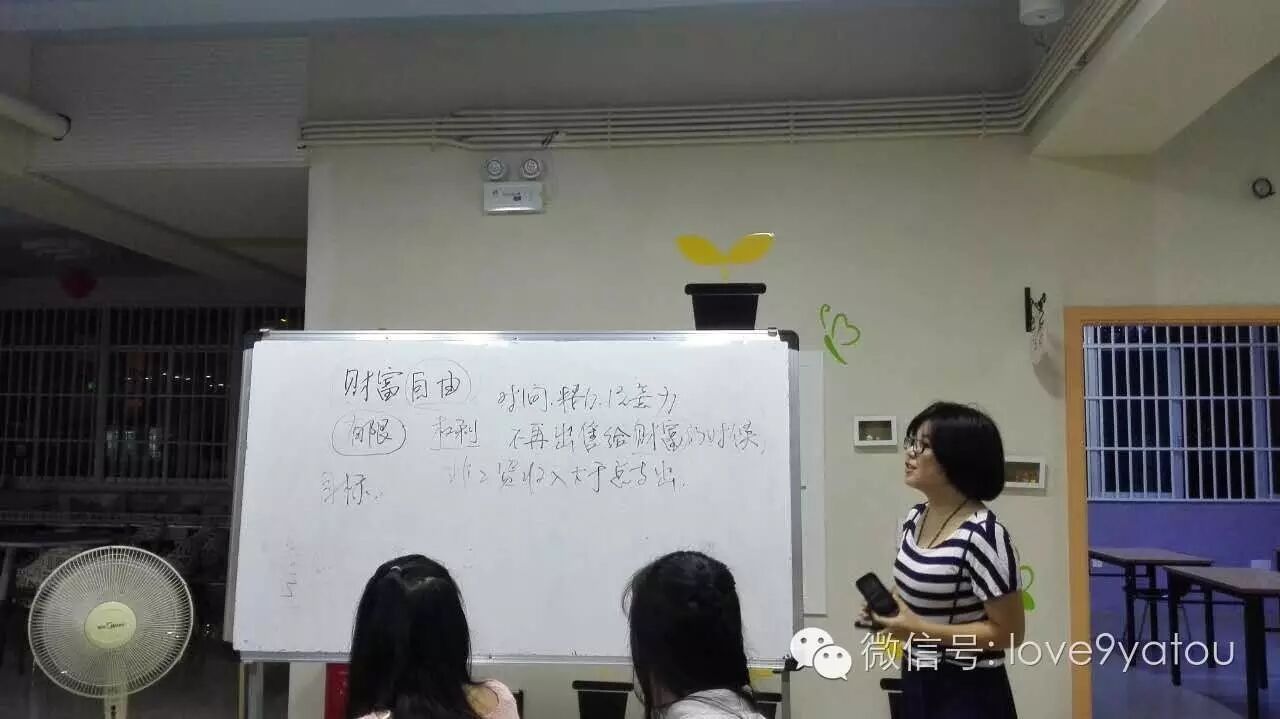 财富自由
时间.精力.注意力
有限 权利 不再出售给财富的时候,
非工资收入大于总支出.
目标..
微信号: love9yatou